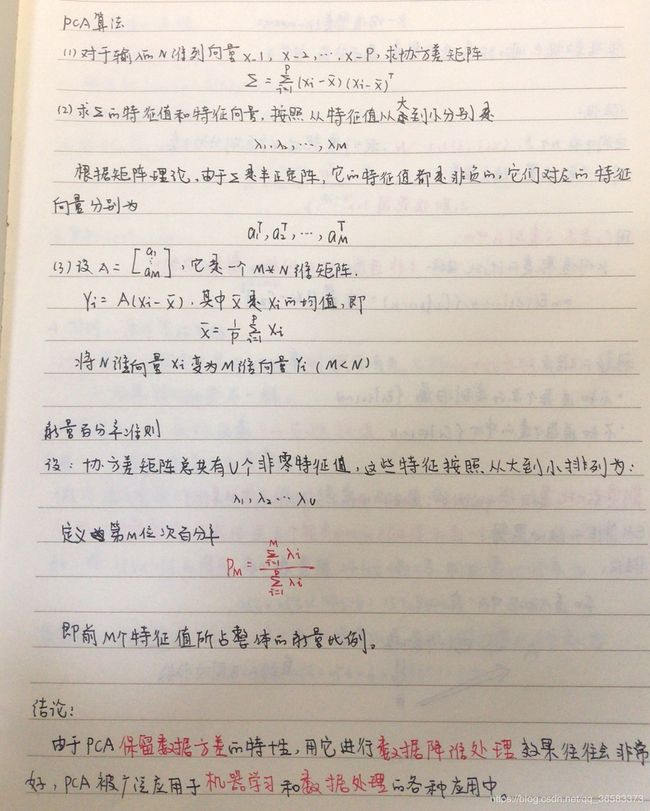 PCA算法
(1) 对于输入的N维列向量 x-1, x-2, ..., x-P, 求协方差矩阵
Σ = Σ_{i=1}^{P} (xi-x̄)(xi-x̄)^T
(2) 求Σ的特征值和特征向量, 按照从特征值从大到小分别是
λ1, λ2, ..., λM
根据矩阵理论, 由于Σ是半正定阵, 它的特征值都是非负的, 它们对应的特征
向量分别为
a1^T, a2^T, ..., aM^T
(3) 设 A = [a1 ⋮ aM], 它是一个 M*N 维矩阵.
Yi = A(xi-x̄), 其中x̄是xi的均值, 即
x̄ = 1/P Σ_{i=1}^{P} xi
将N维向量Xi变为M维向量Yi (M<N)
能量百分率准则
设: 协方差矩阵总共有U个非零特征值, 这些特征按照从大到小排列为:
λ1, λ2 ... λU
定义第M位次百分率
PM = Σ_{i=1}^{M} λi / Σ_{i=1}^{P} λi
即前M个特征值所占整体的能量比例。
结论:
由于PCA保留数据方差的特性, 用它进行数据降维处理效果往往会非常
好, PCA被广泛应用于机器学习和数据处理的各种应用中。
https://blog.csdn.net/qq_38583373